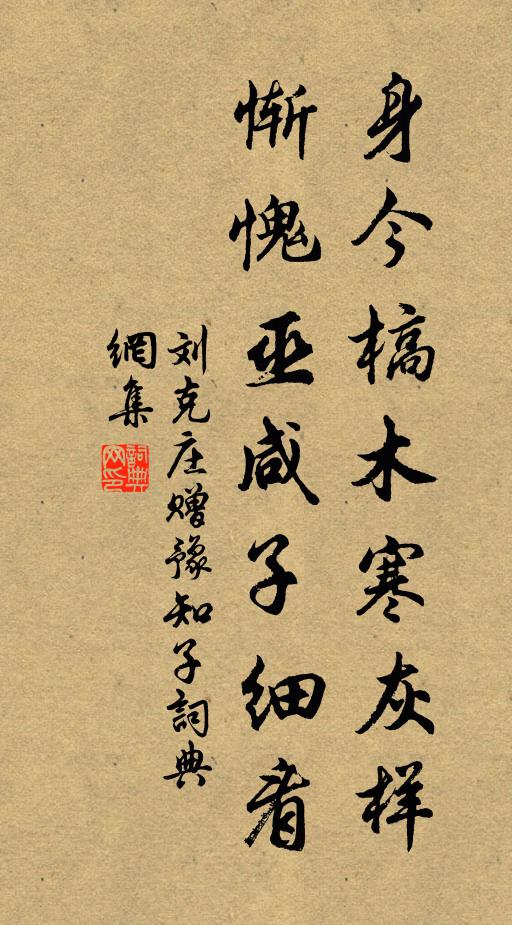 身今槁木寒灰样
惭愧巫咸子细看
刘克庄赠豫知子詞典
網集
詞典
网印